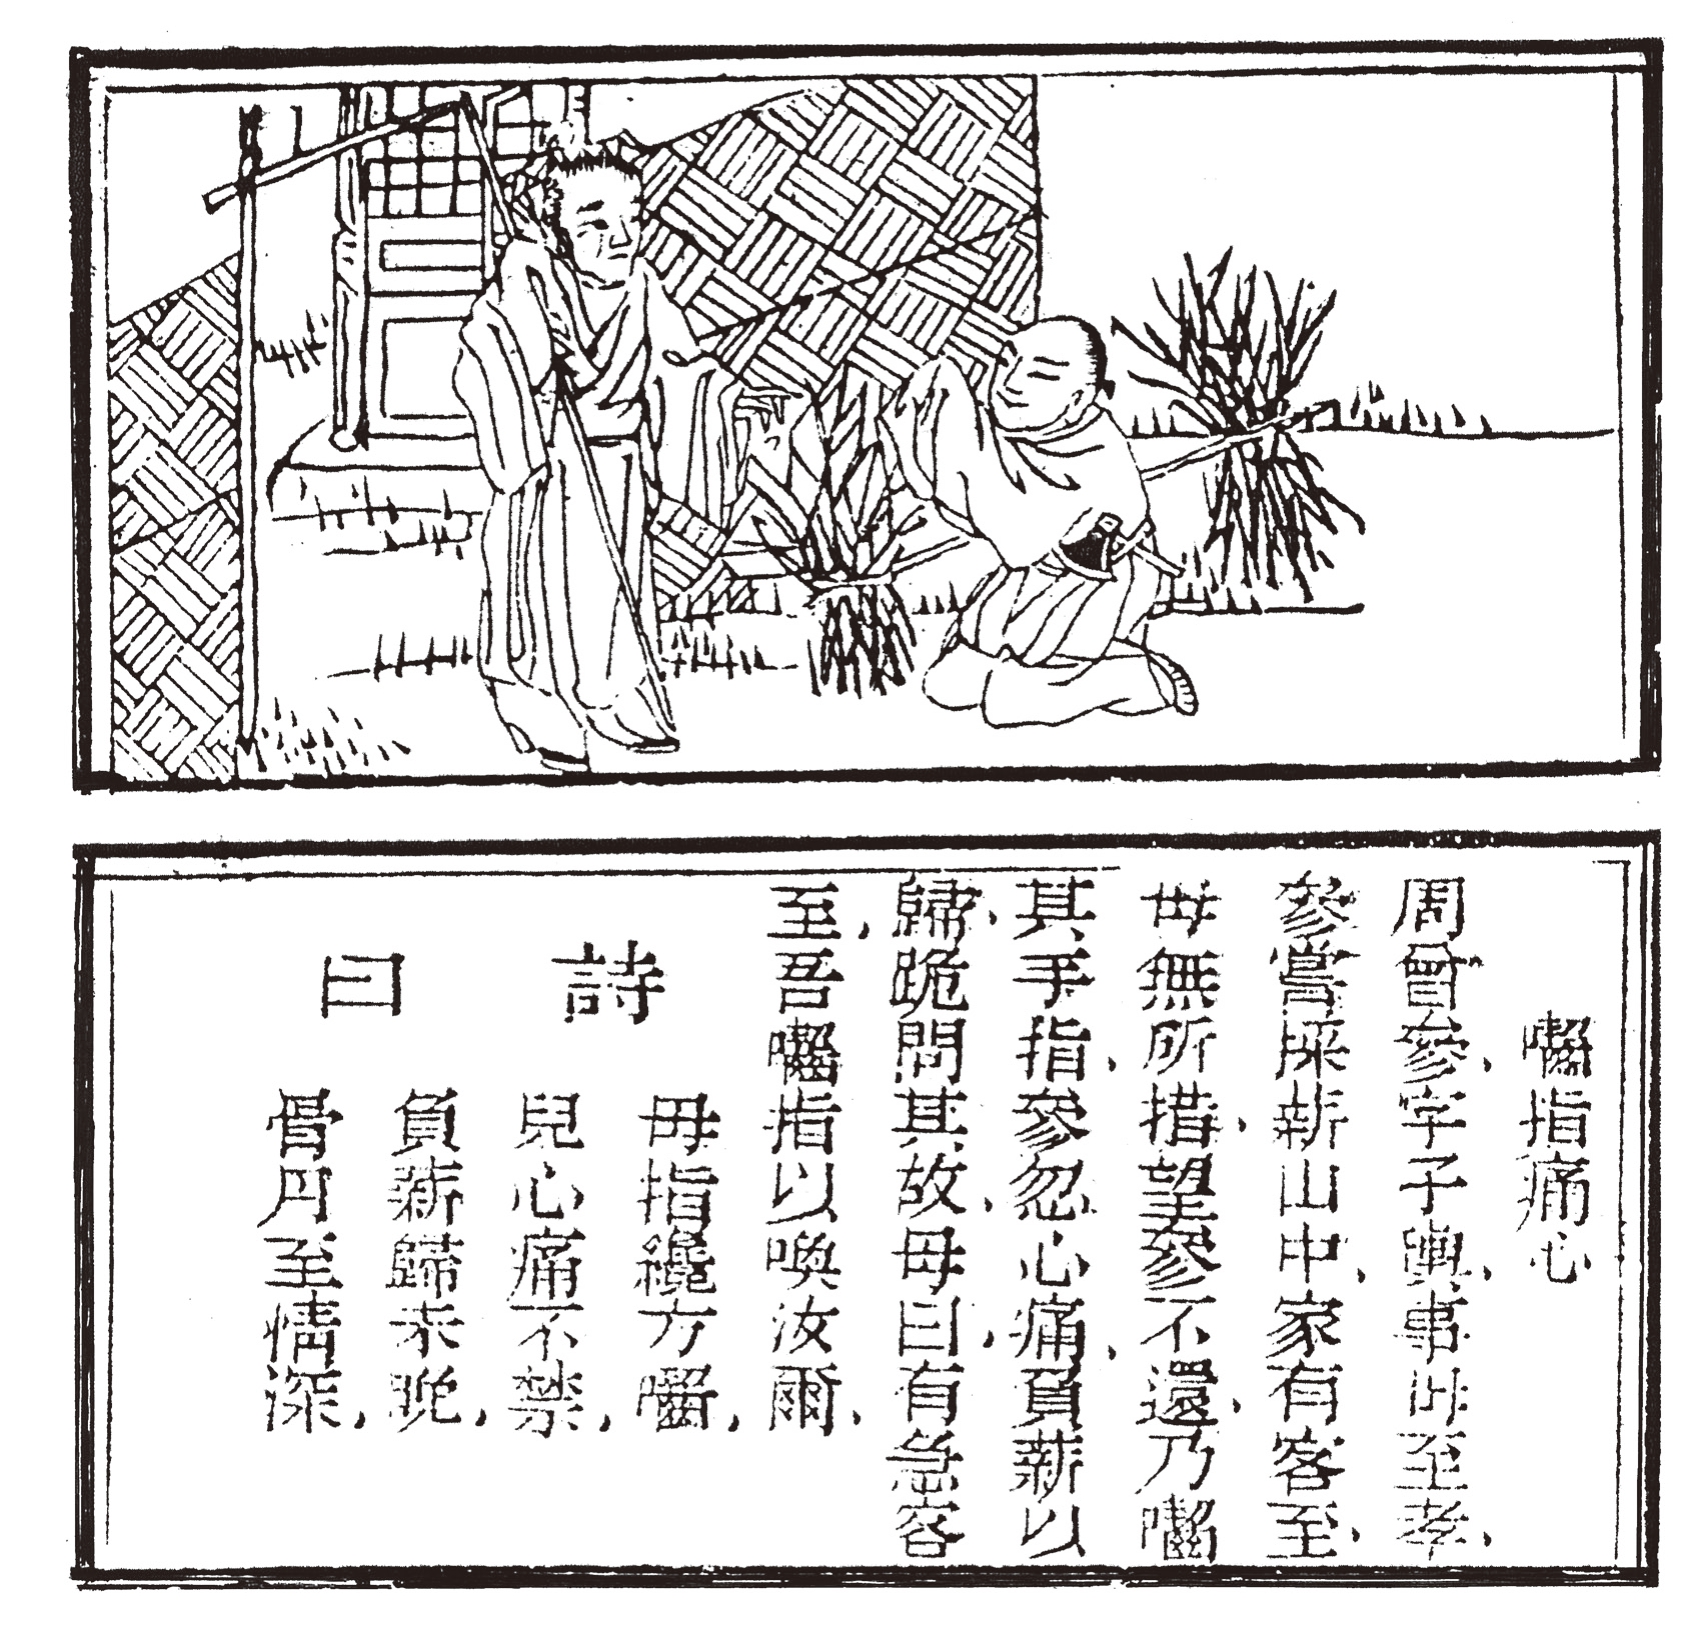 囓指痛心
周曾參、字子輿、事母至孝、
參嘗採薪山中、家有客至、
母無所措、望參不還、乃囓
其手指、參忽心痛、負薪以
歸、跪問其故、母曰、有急客
至、吾囓指以喚汝爾、
詩曰
母指纔方囓、
兒心痛不禁、
負薪歸未晚、
骨肉至情深、